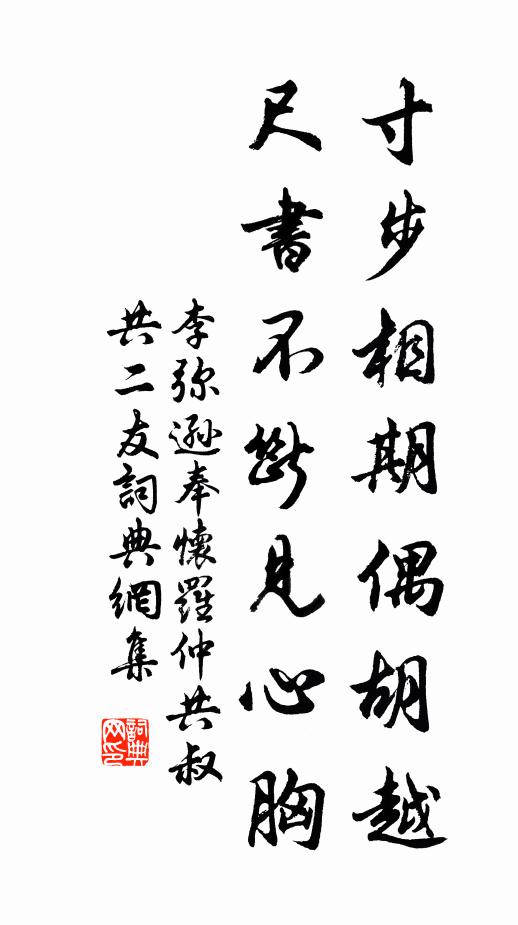 寸步相期偶胡越
尺書不斷見心胸
李弥遜奉懷羅仲共叔
共二友詞典網集
詞典網印